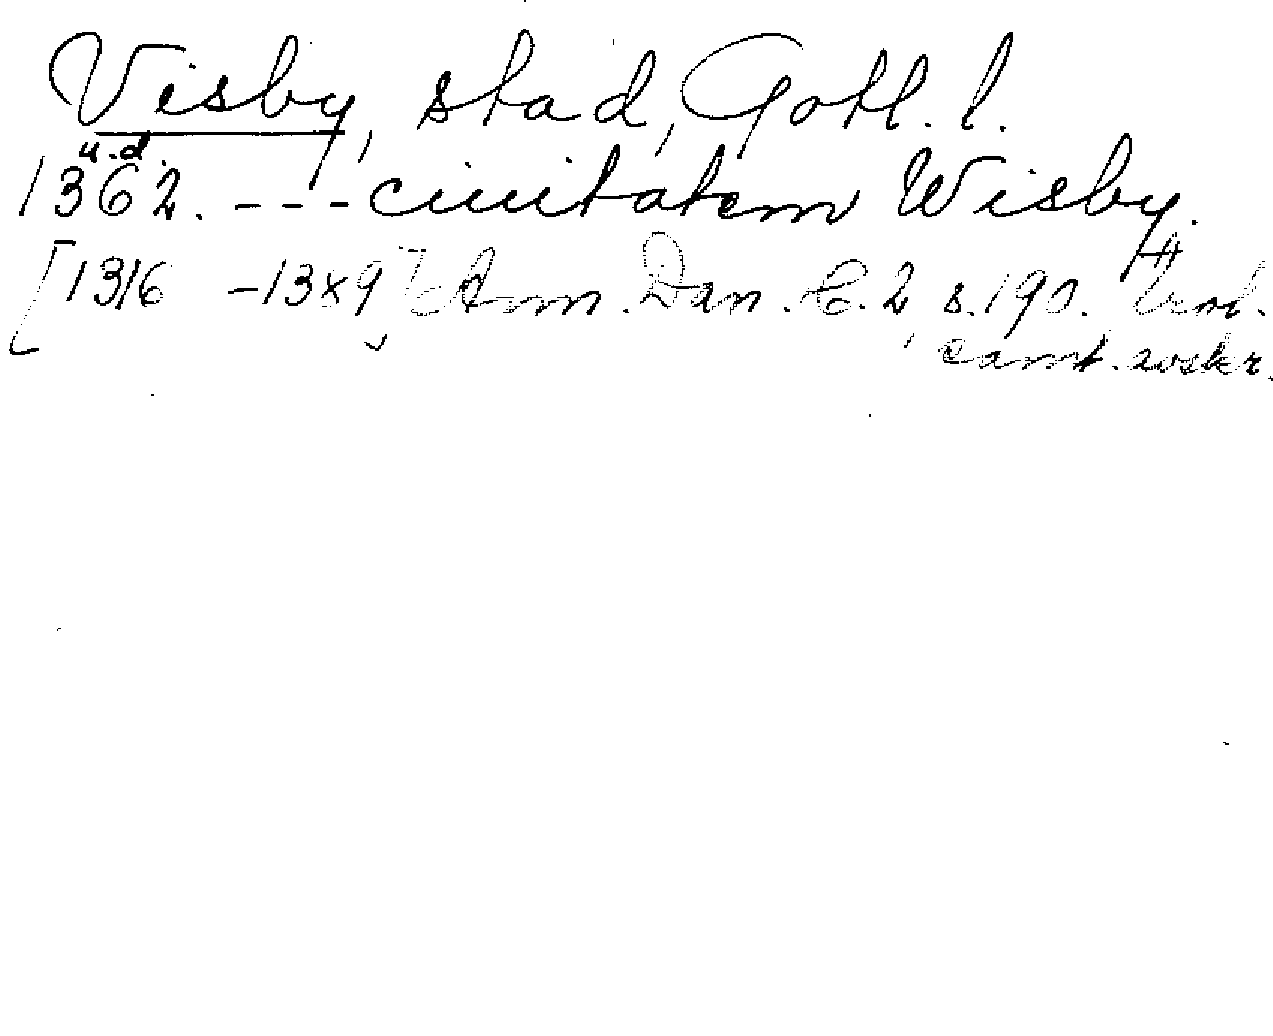 Visby, stad, Gotl. l.
u.d.
1362. --- ciuitatem Wisby.
[1316 -1389] Ann. Dan. C. 2, s. 190.
samt. avskr.